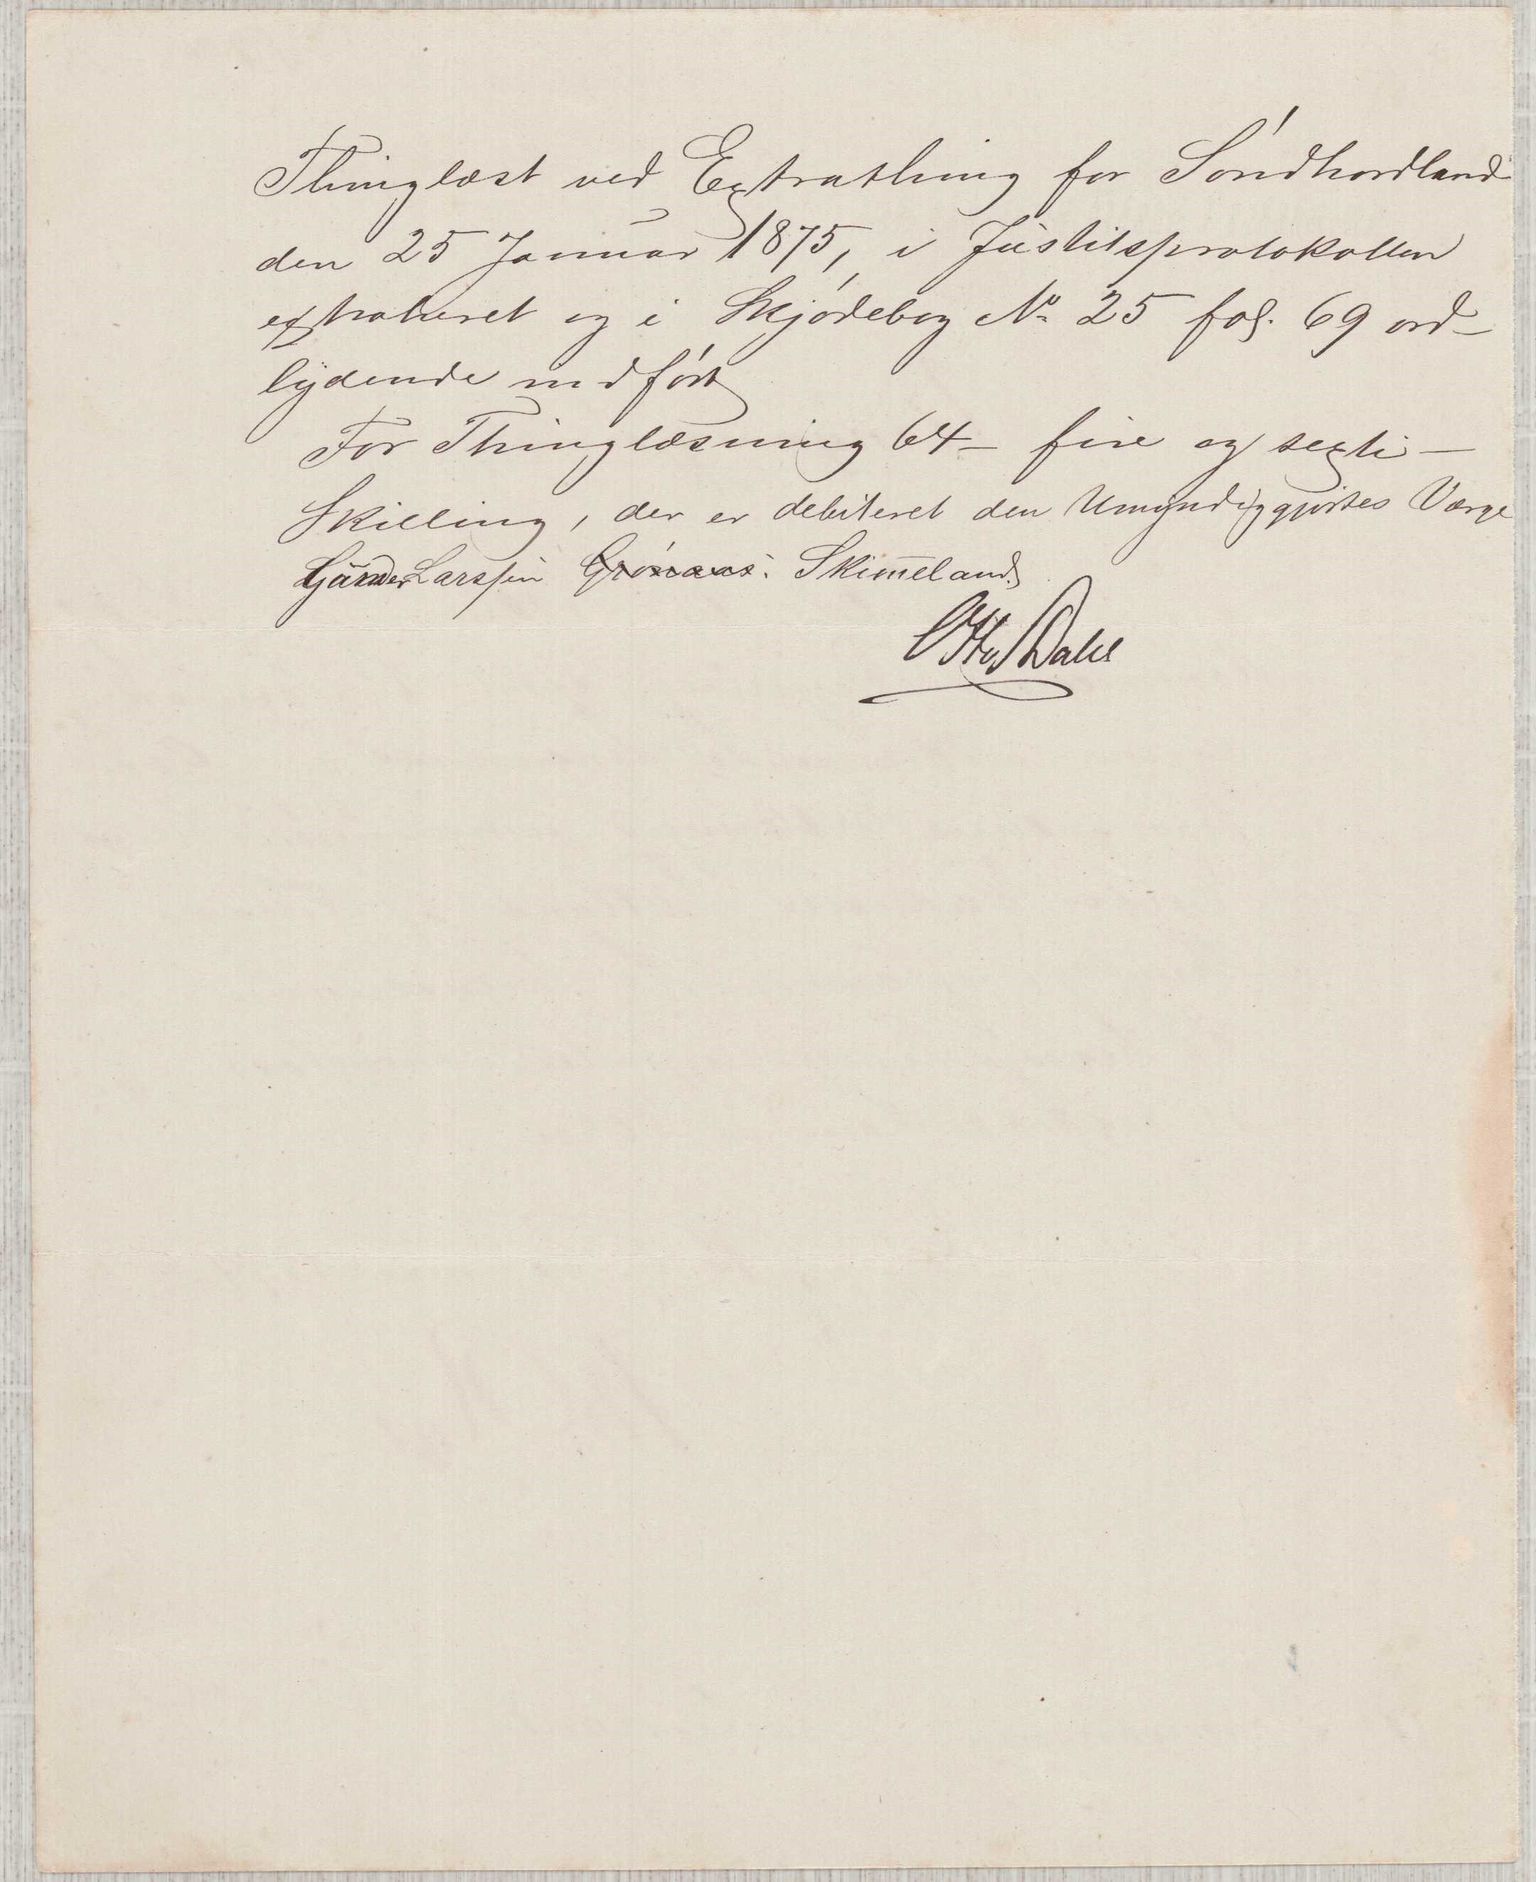 Thinglæst ved Extrathing for Søndhordland
den 25 Januar 1875, i Justitsprotokollen
extraheret og i Skjødebog No 25 fol. 69 ord-
lydende indført
For Thinglæsning 64 - fire og sexti -
Skilling, der er debiteret den Umyndiggjortes Værge
Larssen Grønaas. Skimeland.
Otto Dahl